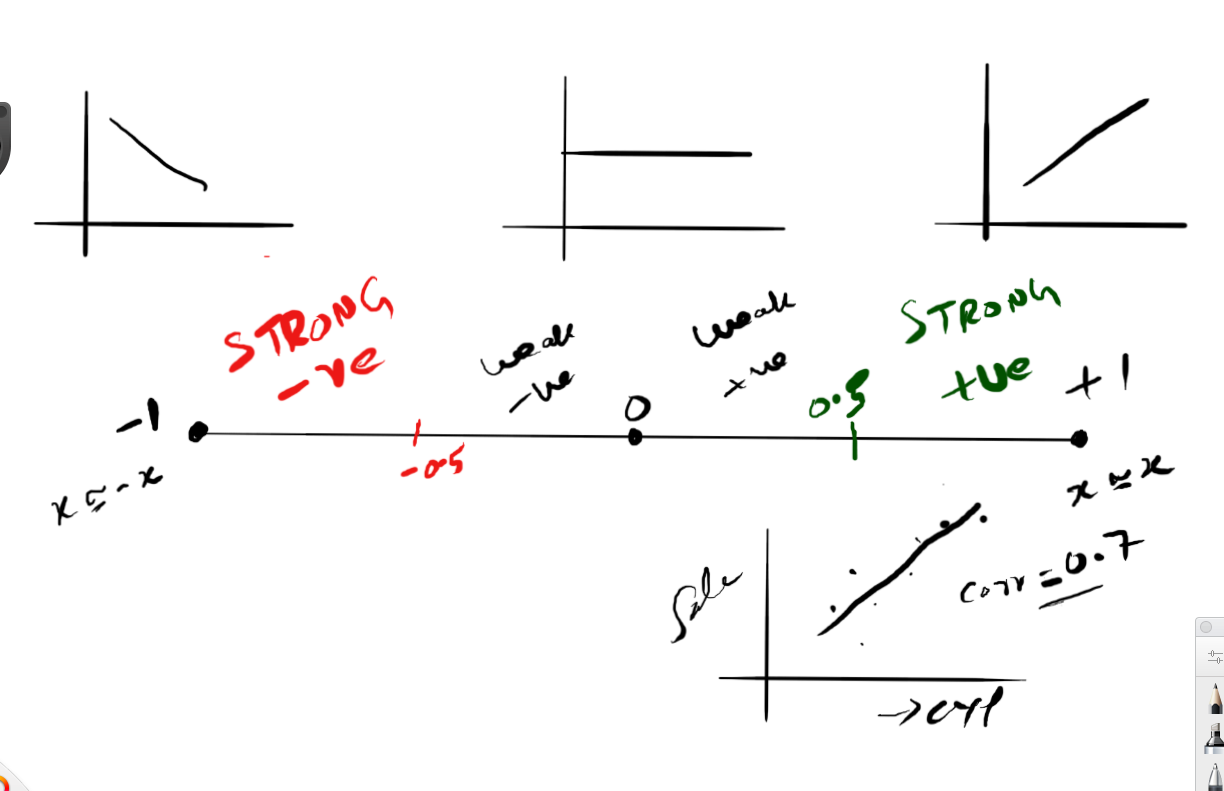 STRONG
-ve
weak
-ve
weak
+ve
STRONG
+ve
-1
0
0.5
+1
-0.5
x ≈ -x
x ≈ x
Sale
corr = 0.7